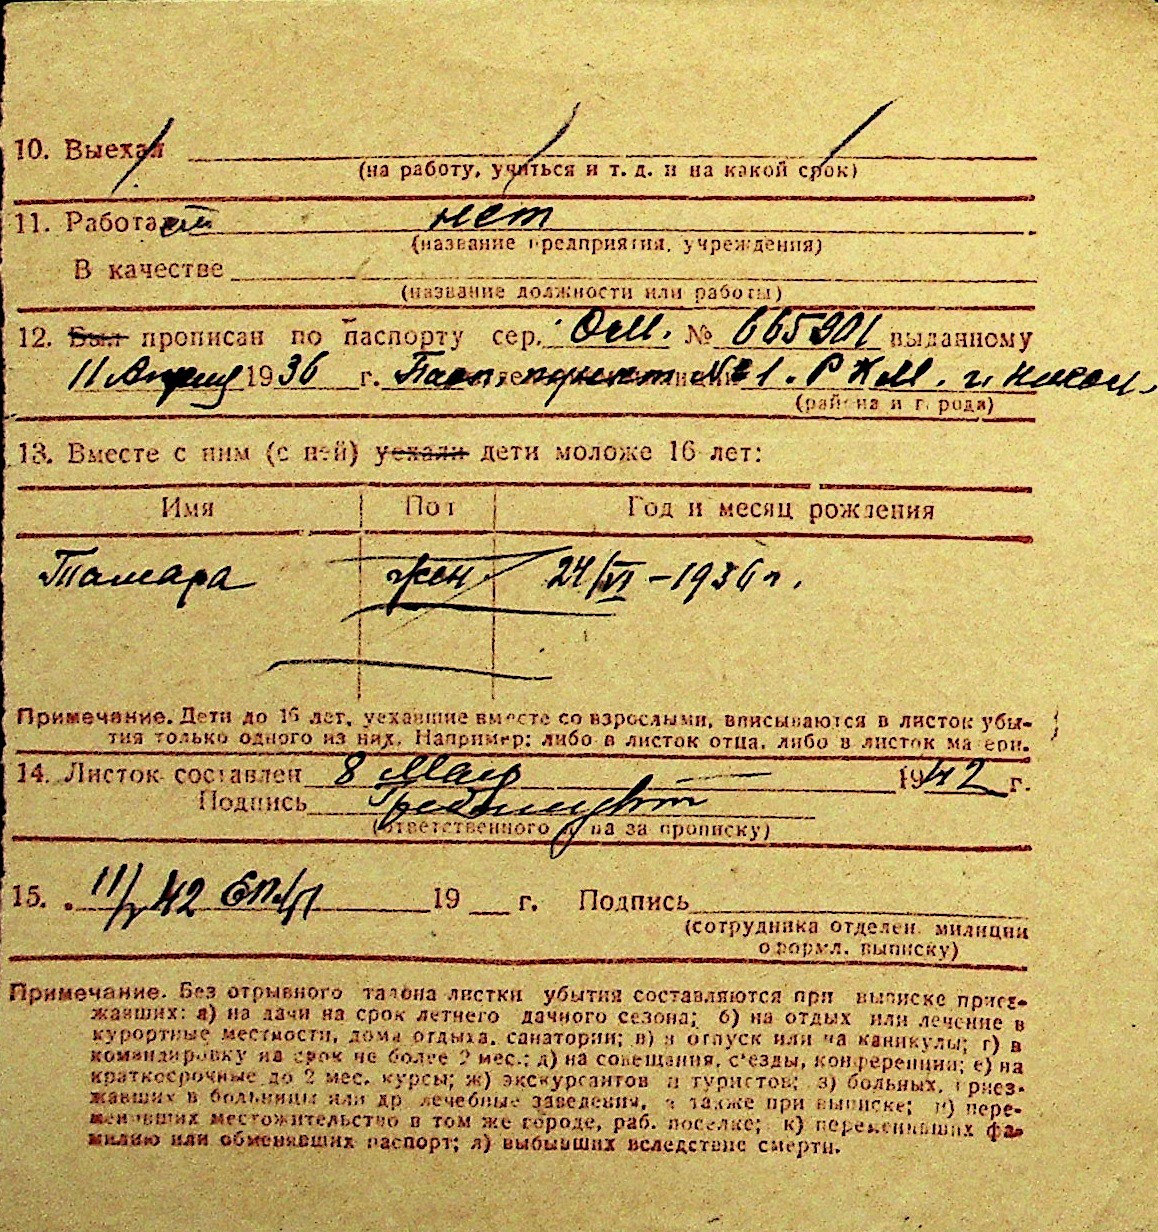 10. Выехал
(на работу, учиться и т. д. и на какой срок)
11. Работает нет
(название предприятия, учреждения)
В качестве
(название должности или работы)
12. Был прописан по паспорту сер. ОМ. № 665901 выданному
11 Апреля 1936 г. Пасп. пункт №1. Р К М. г.
(района и города)
13. Вместе с ним (с ней) уехали дети моложе 16 лет:
Имя Пол Год и месяц рождения
Тамара жен 24/VI – 1936 г.
Примечание. Дети до 16 лет, уехавшие вместе со взрослыми, вписываются в листок убы-
тия только одного из них. Например: либо в листок отца, либо в листок матери.
14. Листок составлен 8 Мая 1942 г.
Подпись
(ответственного лица за прописку)
15. 11/V 42 19 г. Подпись
(сотрудника отделен. милиции
оформл. выписку)
Примечание. Без отрывного талона листки убытия составляются при выписке приез-
жавших: а) на дачи на срок летнего дачного сезона; б) на отдых или лечение в
курортные местности, дома отдыха, санатории; в) в отпуск или на каникулы; г) в
командировку на срок не более 2 мес.; д) на совещания, с'езды, конференции; е) на
краткосрочные до 2 мес. курсы; ж) экскурсантов и туристов; з) больных, приез-
жавших в больницы или др. лечебные заведения, а также при выписке; и) пере-
менивших местожительство в том же городе, раб. поселке; к) переменивших фа-
милию или обменявших паспорт; л) выбывших вследствие смерти.